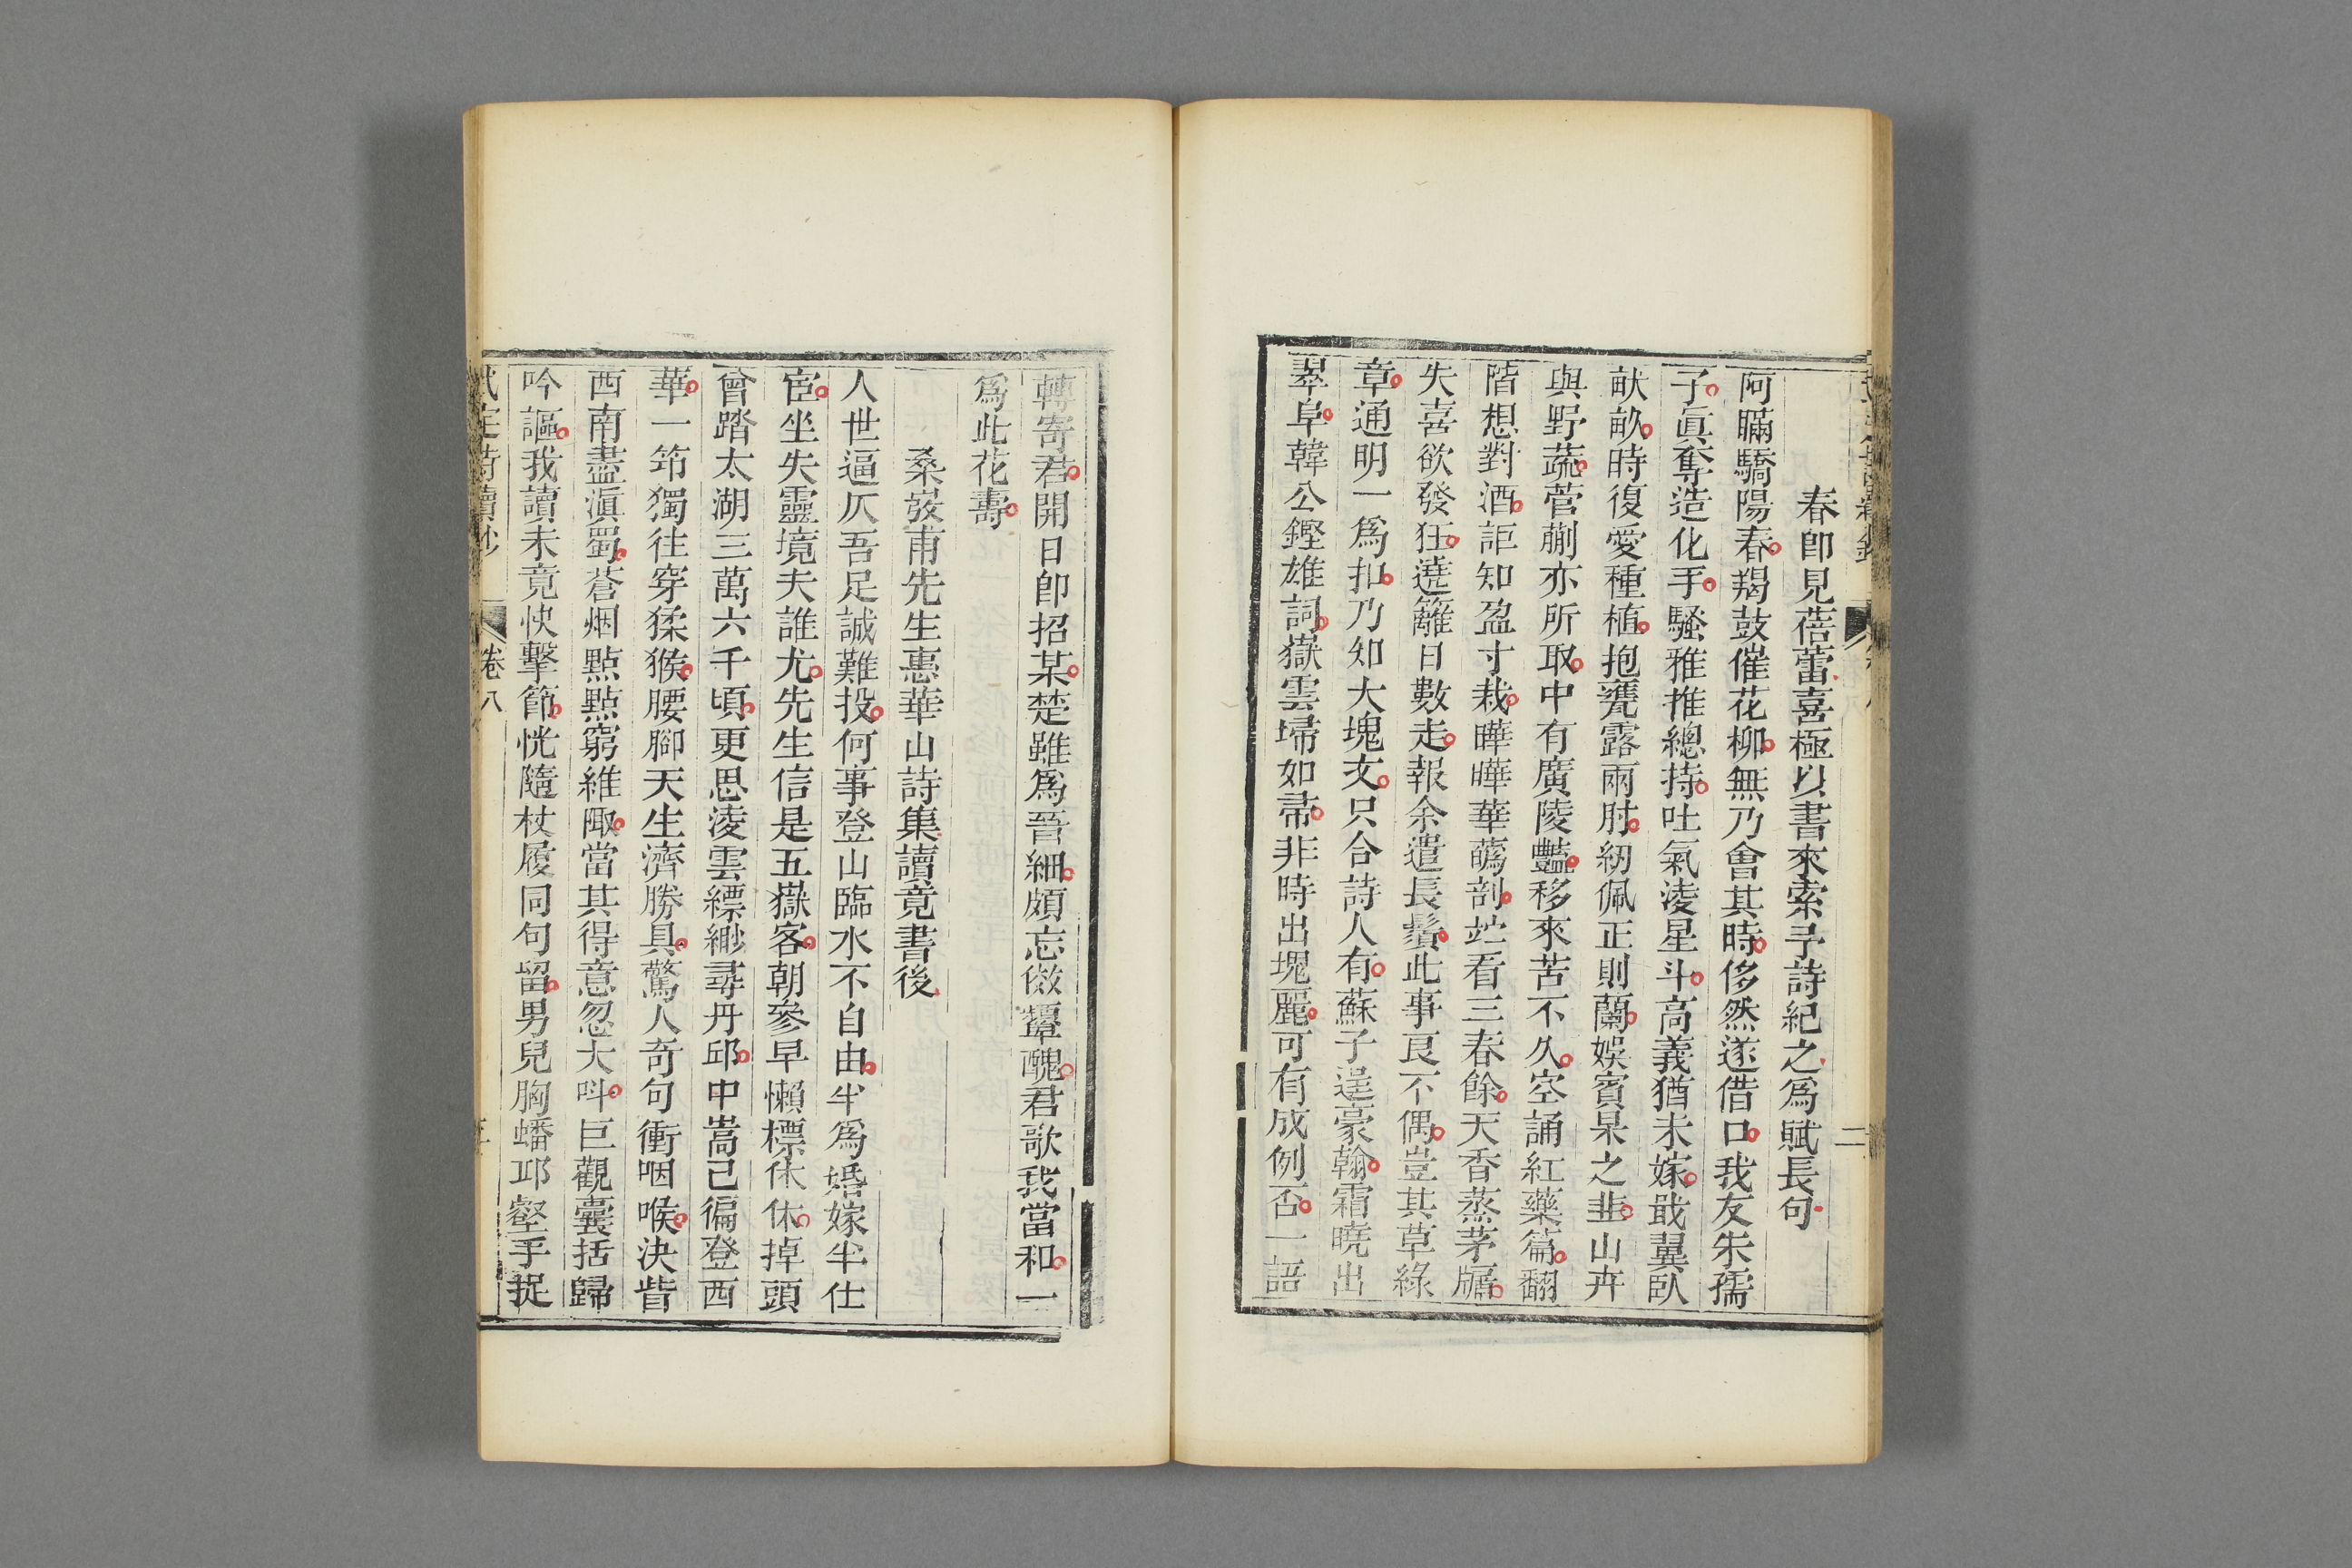 春卽見蓓蕾喜極以書來索予詩紀之爲賦長句
阿瞞驕陽春羯鼓催花柳無乃會其時侈然遂借口我友朱孺
子眞奪造化手騷雅推總持吐氣淩星斗高義猶未嫁戢翼臥
畎畝時復愛種植抱甕露兩肘紉佩正則蘭娛賓杲之韭山卉
與野蔬菅蒯亦所取中有廣陵豔移來苦不久空誦紅藥篇翻
階想對酒詎知盈寸栽曄曄華蕚剖竚看三春餘天香蒸茅牖
失喜欲發狂遶籬日數走報余遣長鬚此事良不偶豈其草綠
章通明一爲扣乃如大塊文只合詩人有蘇子逞豪翰霜曉出
翠阜韓公鏗雄詞嶽雲埽如帚非時出瑰麗可有成例否一語
轉寄君開日卽招某楚雖爲晉細頗忘傚顰醜君歌我當和一
爲此花壽
桑弢甫先生惠華山詩集讀竟書後
人世逼仄吾足誠難投何事登山臨水不自由半爲婚嫁半仕
宦坐失靈境夫誰尤先生信是五嶽客朝參早懶標休休掉頭
曾踏太湖三萬六千頃更思淩雲縹緲尋丹邱中嵩已徧登西
華一筇獨往穿猱猴腰脚天生濟勝具驚人奇句衝咽喉決眥
西南盡滇蜀蒼烟點點窮維陬當其得意忽大呌巨觀囊括歸
吟謳我讀未竟快擊節恍隨杖履同句留男兒胸蟠邱壑手捉
卷八